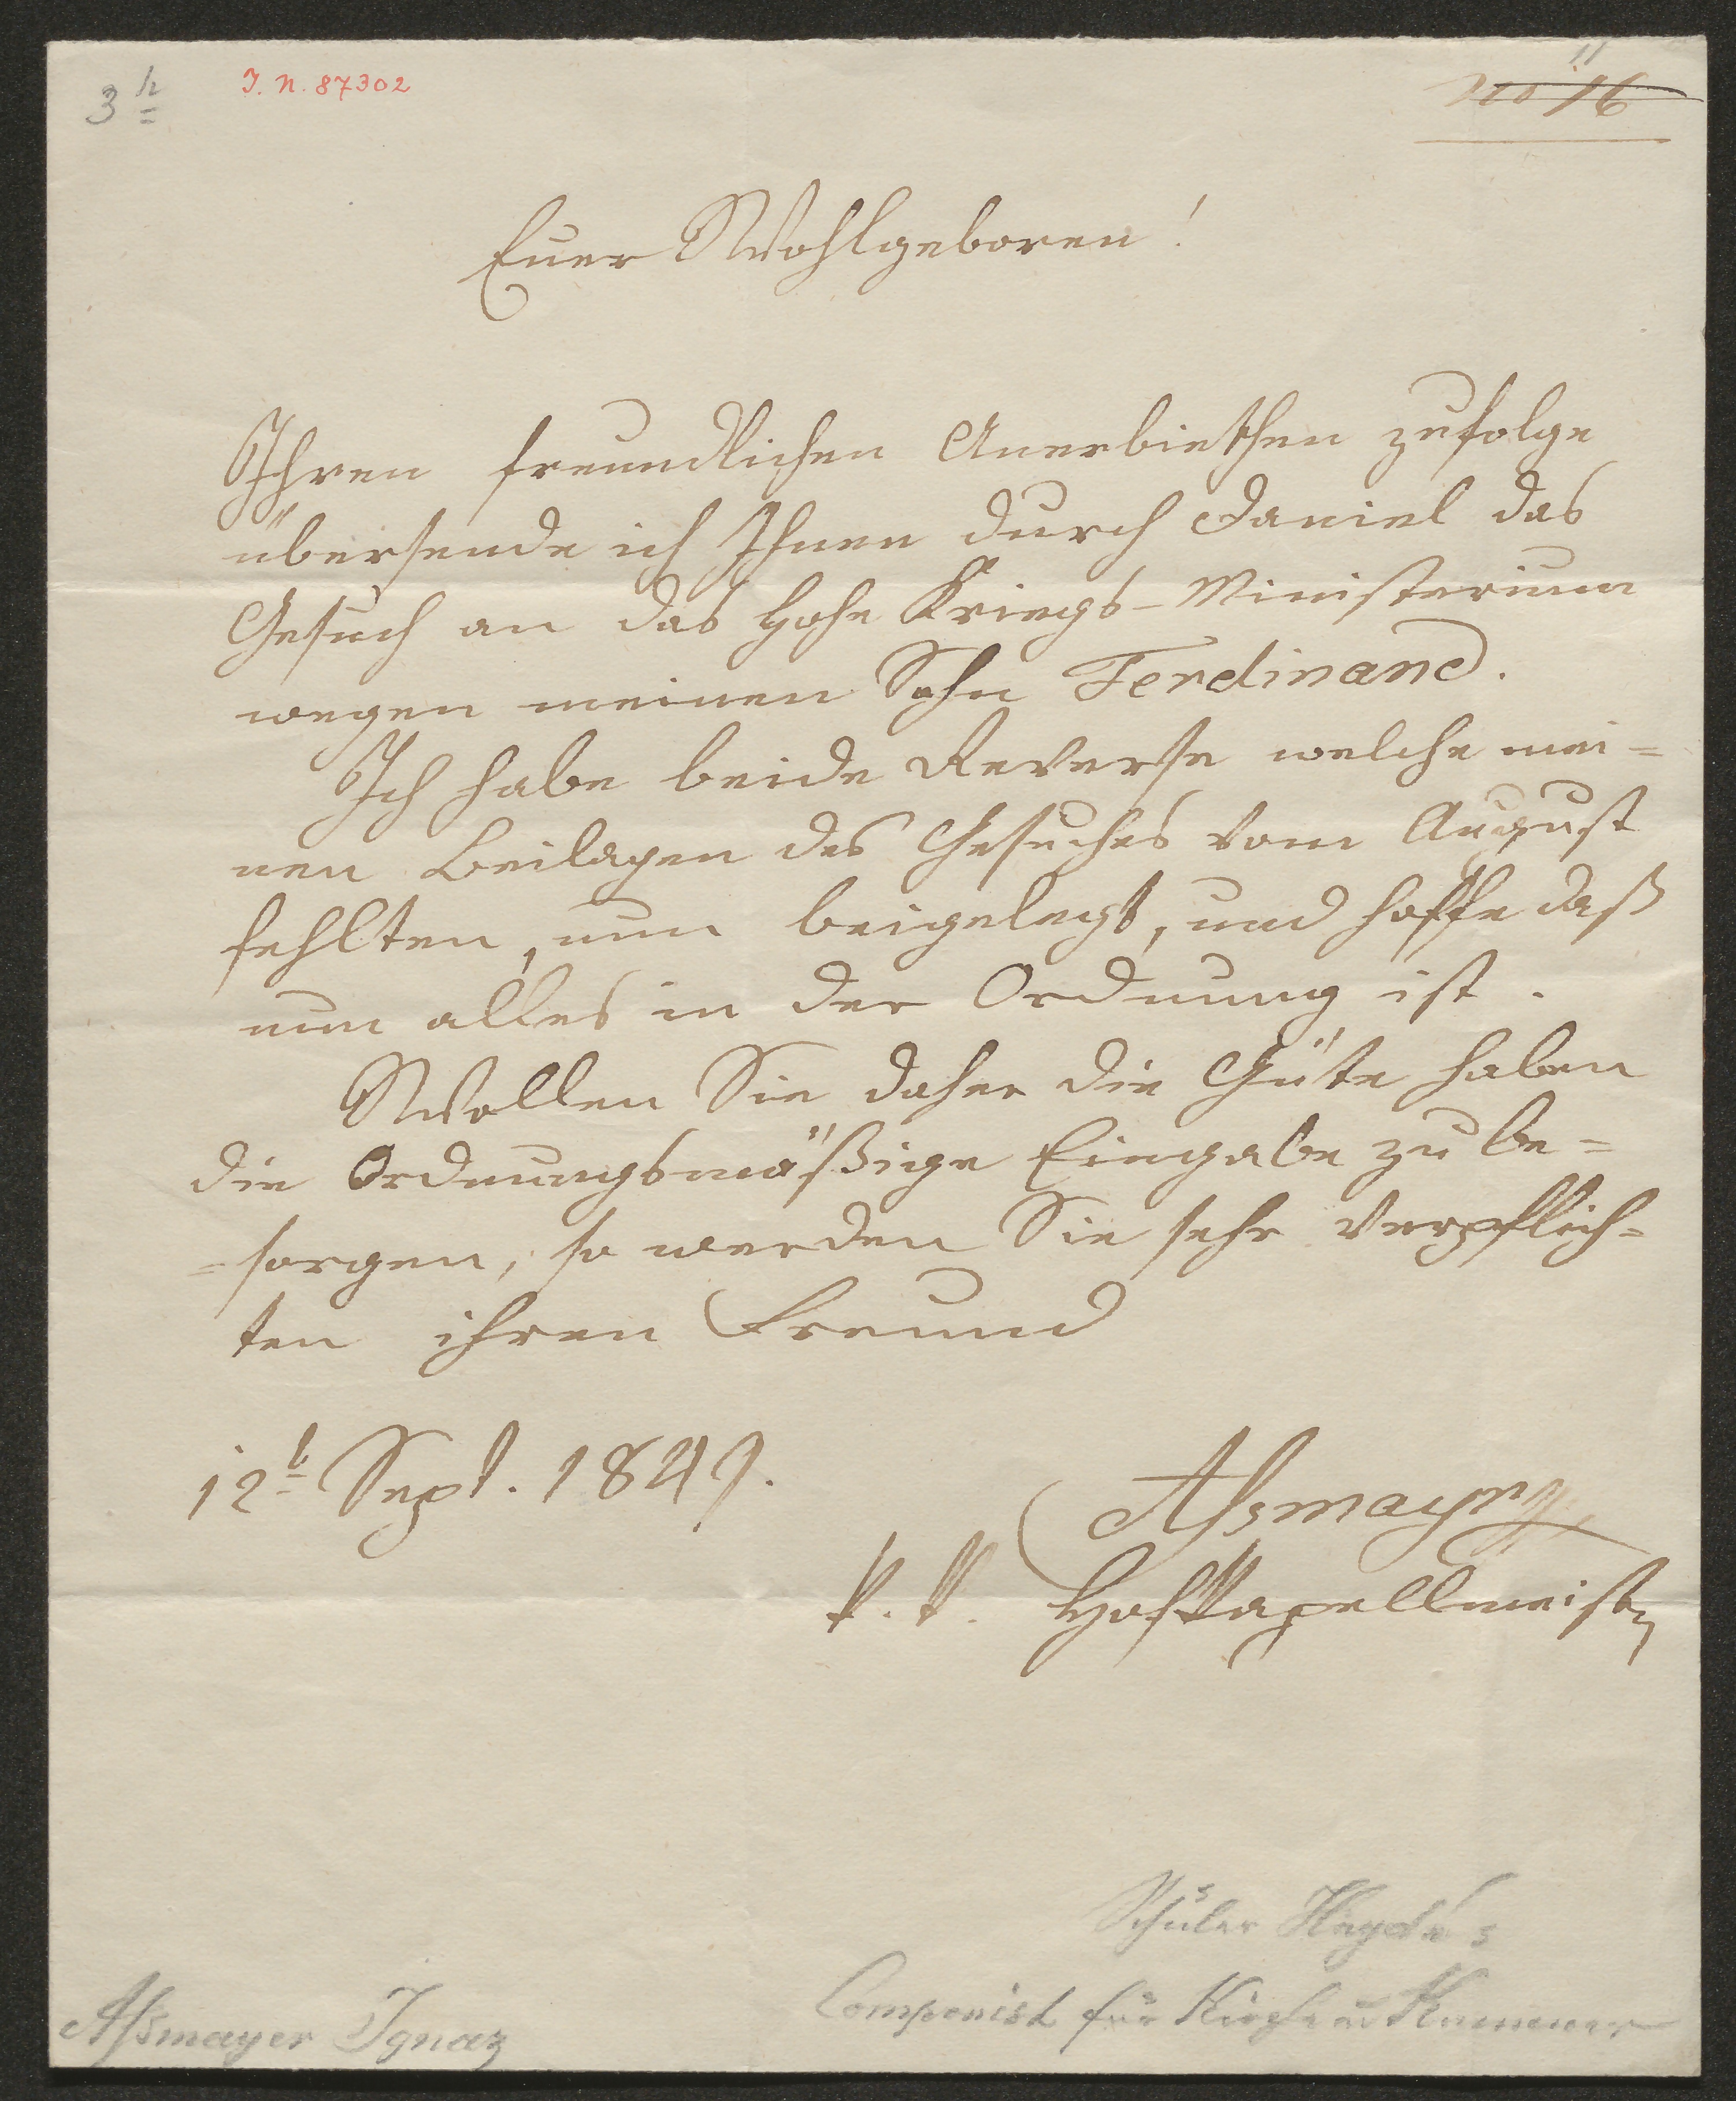 3 h
I. N. 87302
11
No 16
Euer Wohlgeboren!
Ihren freundlichen Anerbiethen zufolge
übersende ich Ihnen durch Daniel das
Gesuch an das hohe Kriegs-Ministerium
wegen meinen Sohn Ferdinand.
Ich habe beide Reverse welche mei=
nen Beilagen des Gesuches vom August
fehlten, nun beigelegt, und hoffe daß
nun alles in der Ordnung ist.
Wollen Sie daher die Güte haben
die Ordnungsmäßige Eingabe zu be=
=sorgen, so werden Sie sehr verpflich=
ten ihren Freund
12t Sept. 1849.
Assmayr
k. k. Hofkapellmeister
Schüler Haydn's
Componist für Kirche u Kammer
Assmayer Ignaz